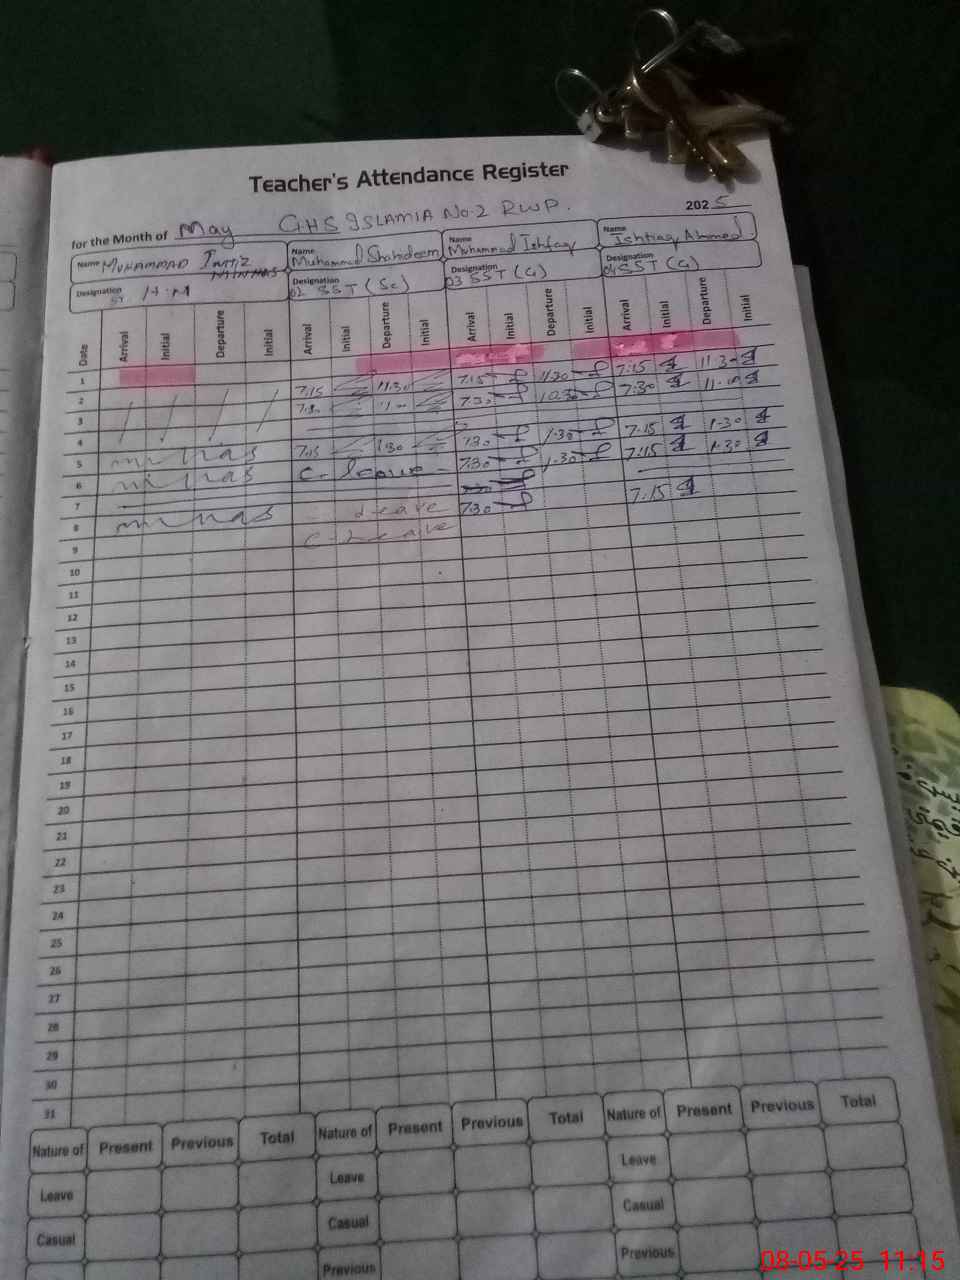 Teacher's Attendance Register
for the Month of May GHS ISLAMIA No.2 RWP. 2025
Name MUHAMMAD IMTIZ MINHAS Name Muhammad Shahideem Name Muhammad Ishfaq Name Ishtiaq Ahmed
Designation H.M Designation 02 SST (Sc) Designation 03 SST (G) Designation 04 SST (G)
Date Arrival Initial Departure Initial Arrival Initial Departure Initial Arrival Initial Departure Initial Arrival Initial Departure Initial
1
2 7:15 11:30 7:15 11:30 7:15 11:30
3 7:30 7:30 10:30 7:30
4
5 minhas 7:15 1:30 7:30 1:30 7:15 1:30
6 minhas C-leave 7:30 1:30 7:15 1:30
7
8 minhas Leave 7:30 7:15
9 C-Leave
10
11
12
13
14
15
16
17
18
19
20
21
22
23
24
25
26
27
28
29
30
31
Nature of Present Previous Total Nature of Present Previous Total Nature of Present Previous Total
Leave Leave Leave
Casual Casual Casual
Previous Previous
08-05-25 11:15